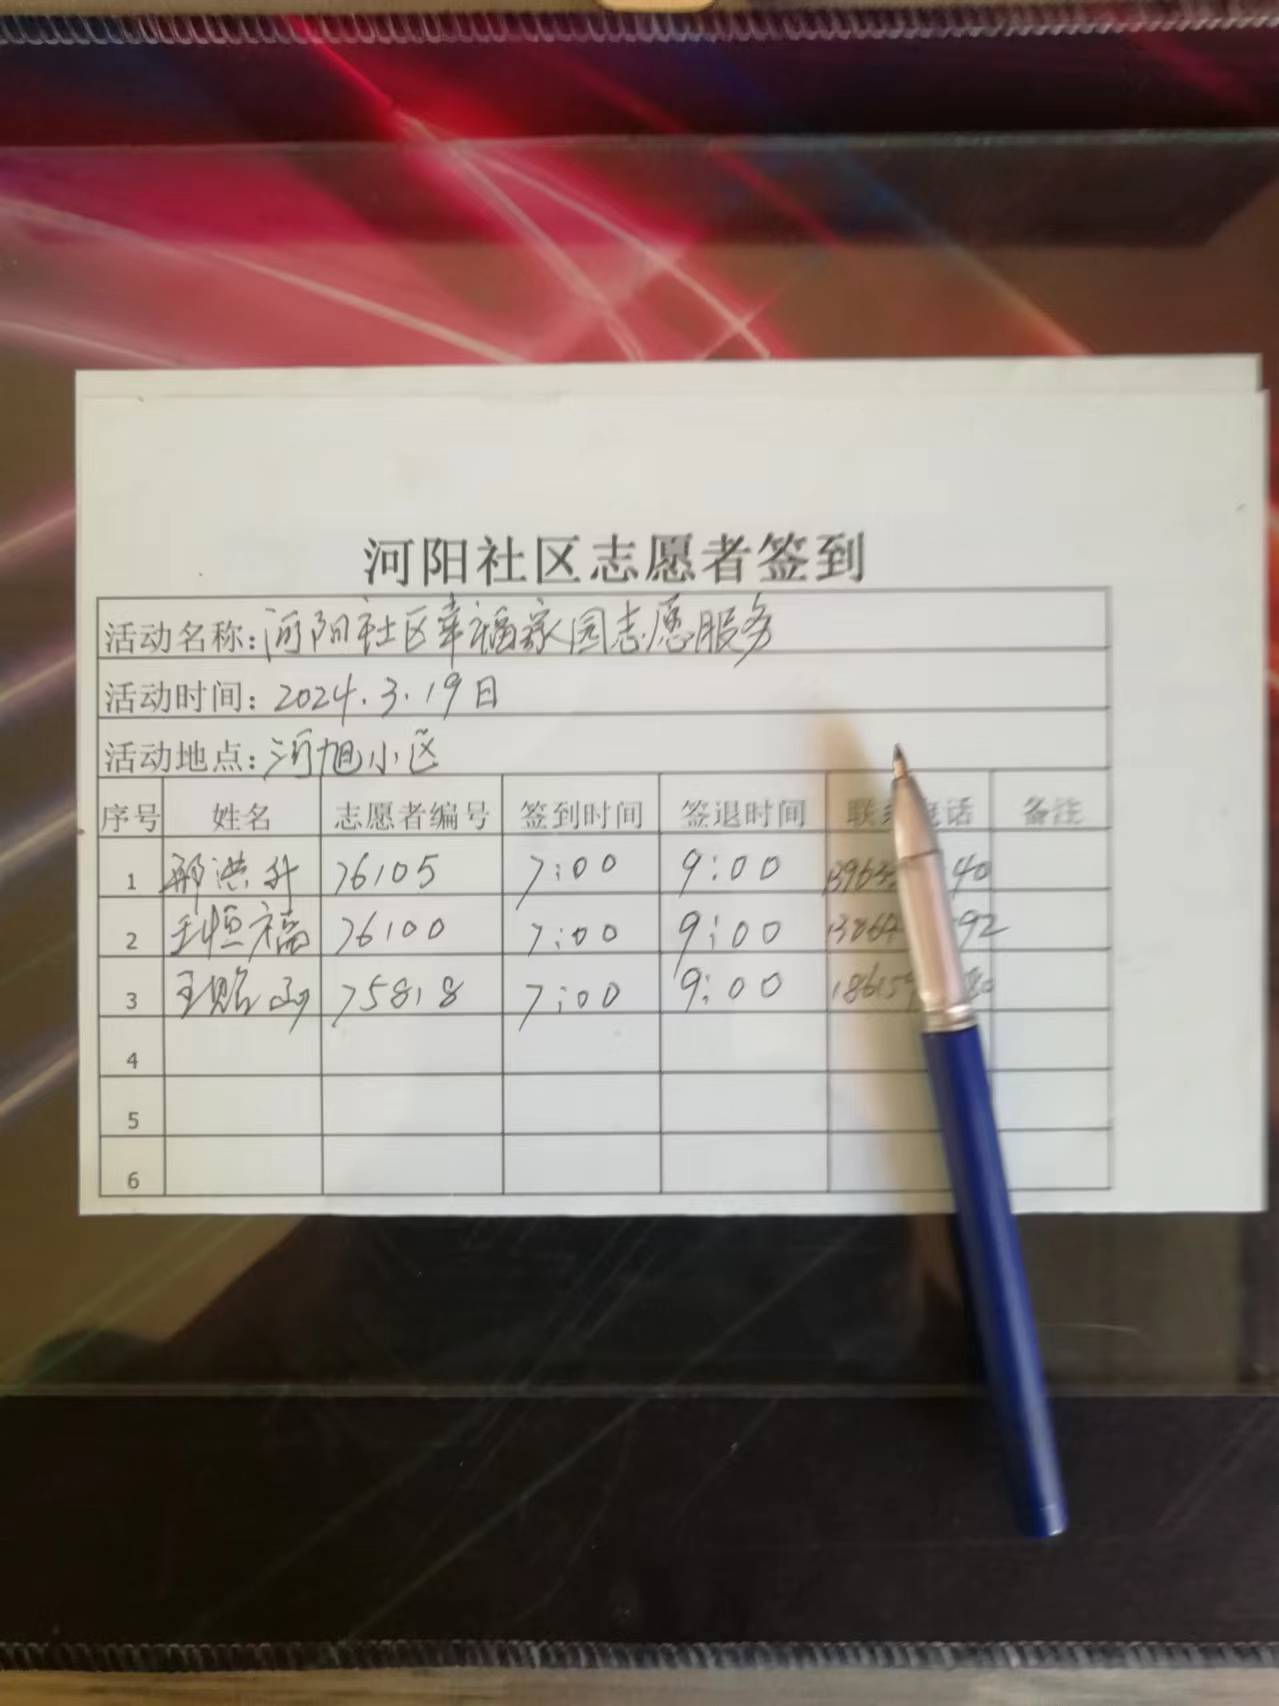 河阳社区志愿者签到
活动名称:河阳社区幸福家园志愿服务
活动时间:2024.3.19日
活动地点:河旭小区
序号 姓名 志愿者编号 签到时间 签退时间 联系电话 备注
1 邢洪升 76105 7:00 9:00 13963 40
2 王恒福 76100 7:00 9:00 1386 92
3 王贻 75818 7:00 9:00 18615
4
5
6